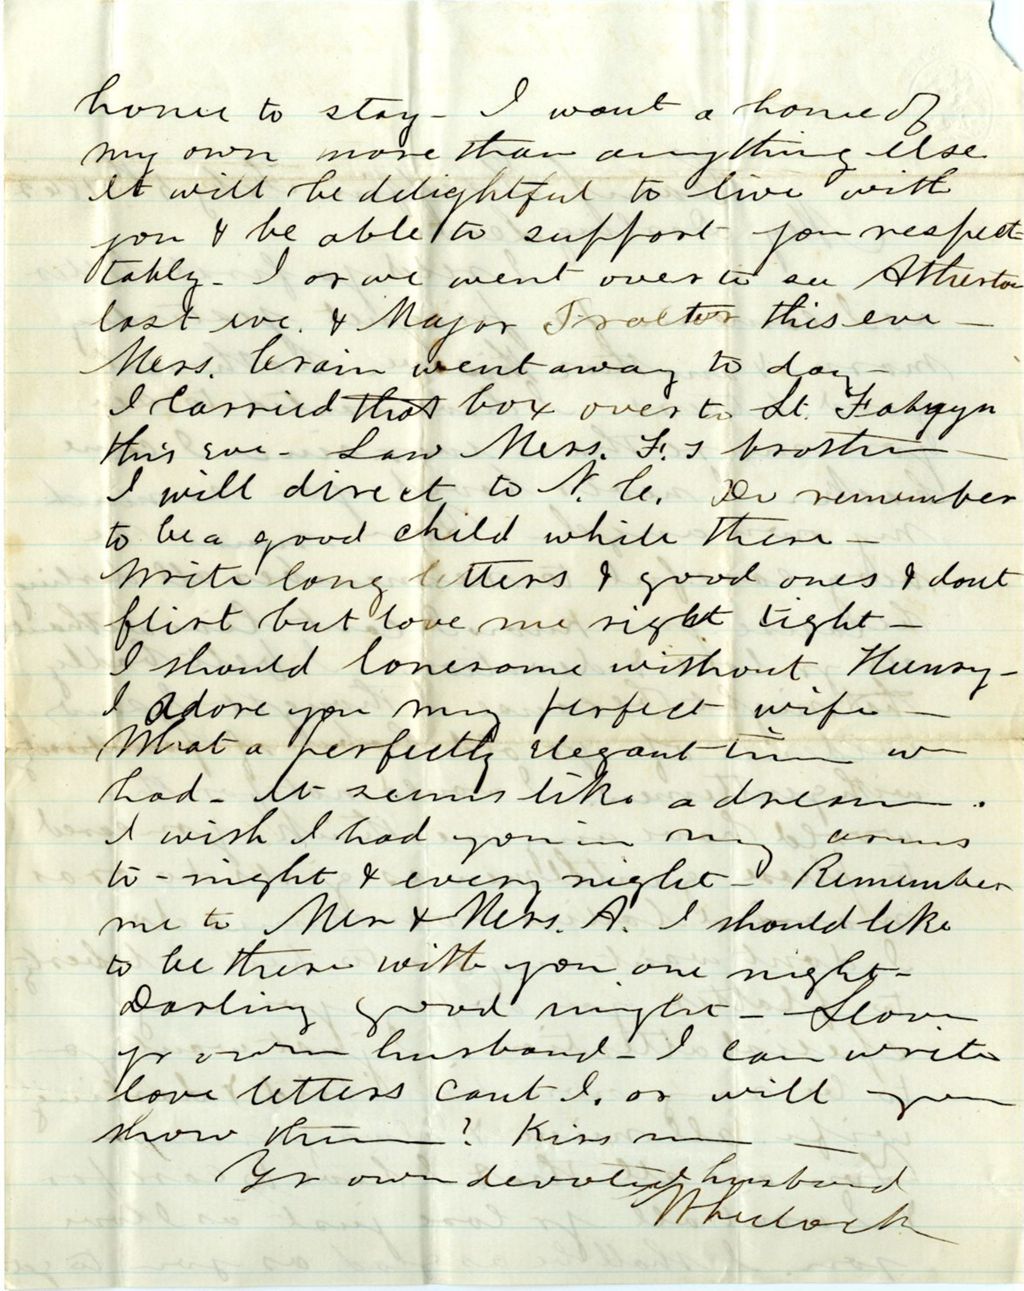 home to stay - I want a home of
my own more than anything else
It will be delightful to live with
you & be able to support you respect-
tably - I or we went over to see Atherton
last eve. & Major Proctor this eve -
Mrs. Crain went away to day -
I carried that box over to St. Fabyyn
this eve - Saw Mrs. F.s brother -
I will direct to N. C. Do remember
to be a good child while there -
Write long letters & good ones & dont
flirt but love me right tight -
I should lonesome without Henry -
I adore you my perfect wife -
What a perfectly elegant time we
had - It seems like a dream .
I wish I had you in my arms
to-night & every night - Remember
me to Mr & Mrs. A. I should like
to be there with you one night -
Darling good night - Love
yr own husband - I can write
love letters cant I, or will you
show them? Kiss me -
Yr own devoted husband
Wheelock